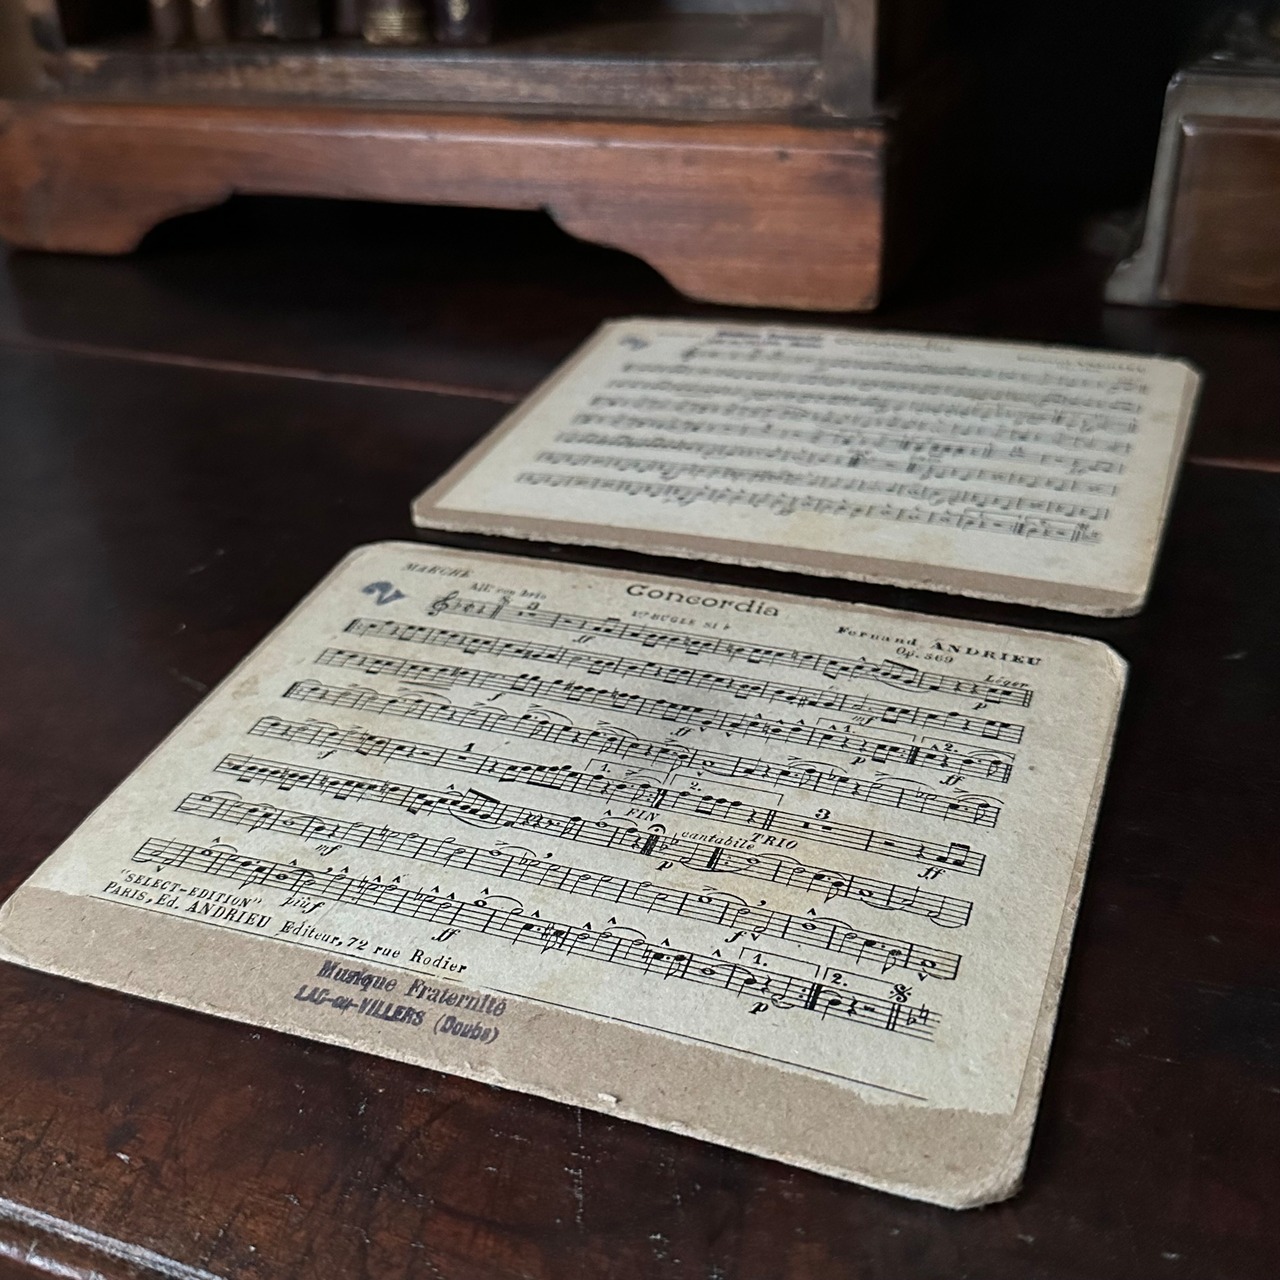 MARCHE
2
Concordia
All° con brio
1er BUGLE SI♭
Fernand ANDRIEU
Op. 569
8
ff
Léger
p
mf
1.
f
ff
p
2.
ff
1
1.
2.
3
f
FIN
cantabile
TRIO
p
ff
mf
f
"SELECT-EDITION"
più f
ff
1.
2.
p
PARIS, Ed. ANDRIEU Editeur, 72 rue Rodier
Musique Fraternité
LAC-ou-VILLERS (Doubs)